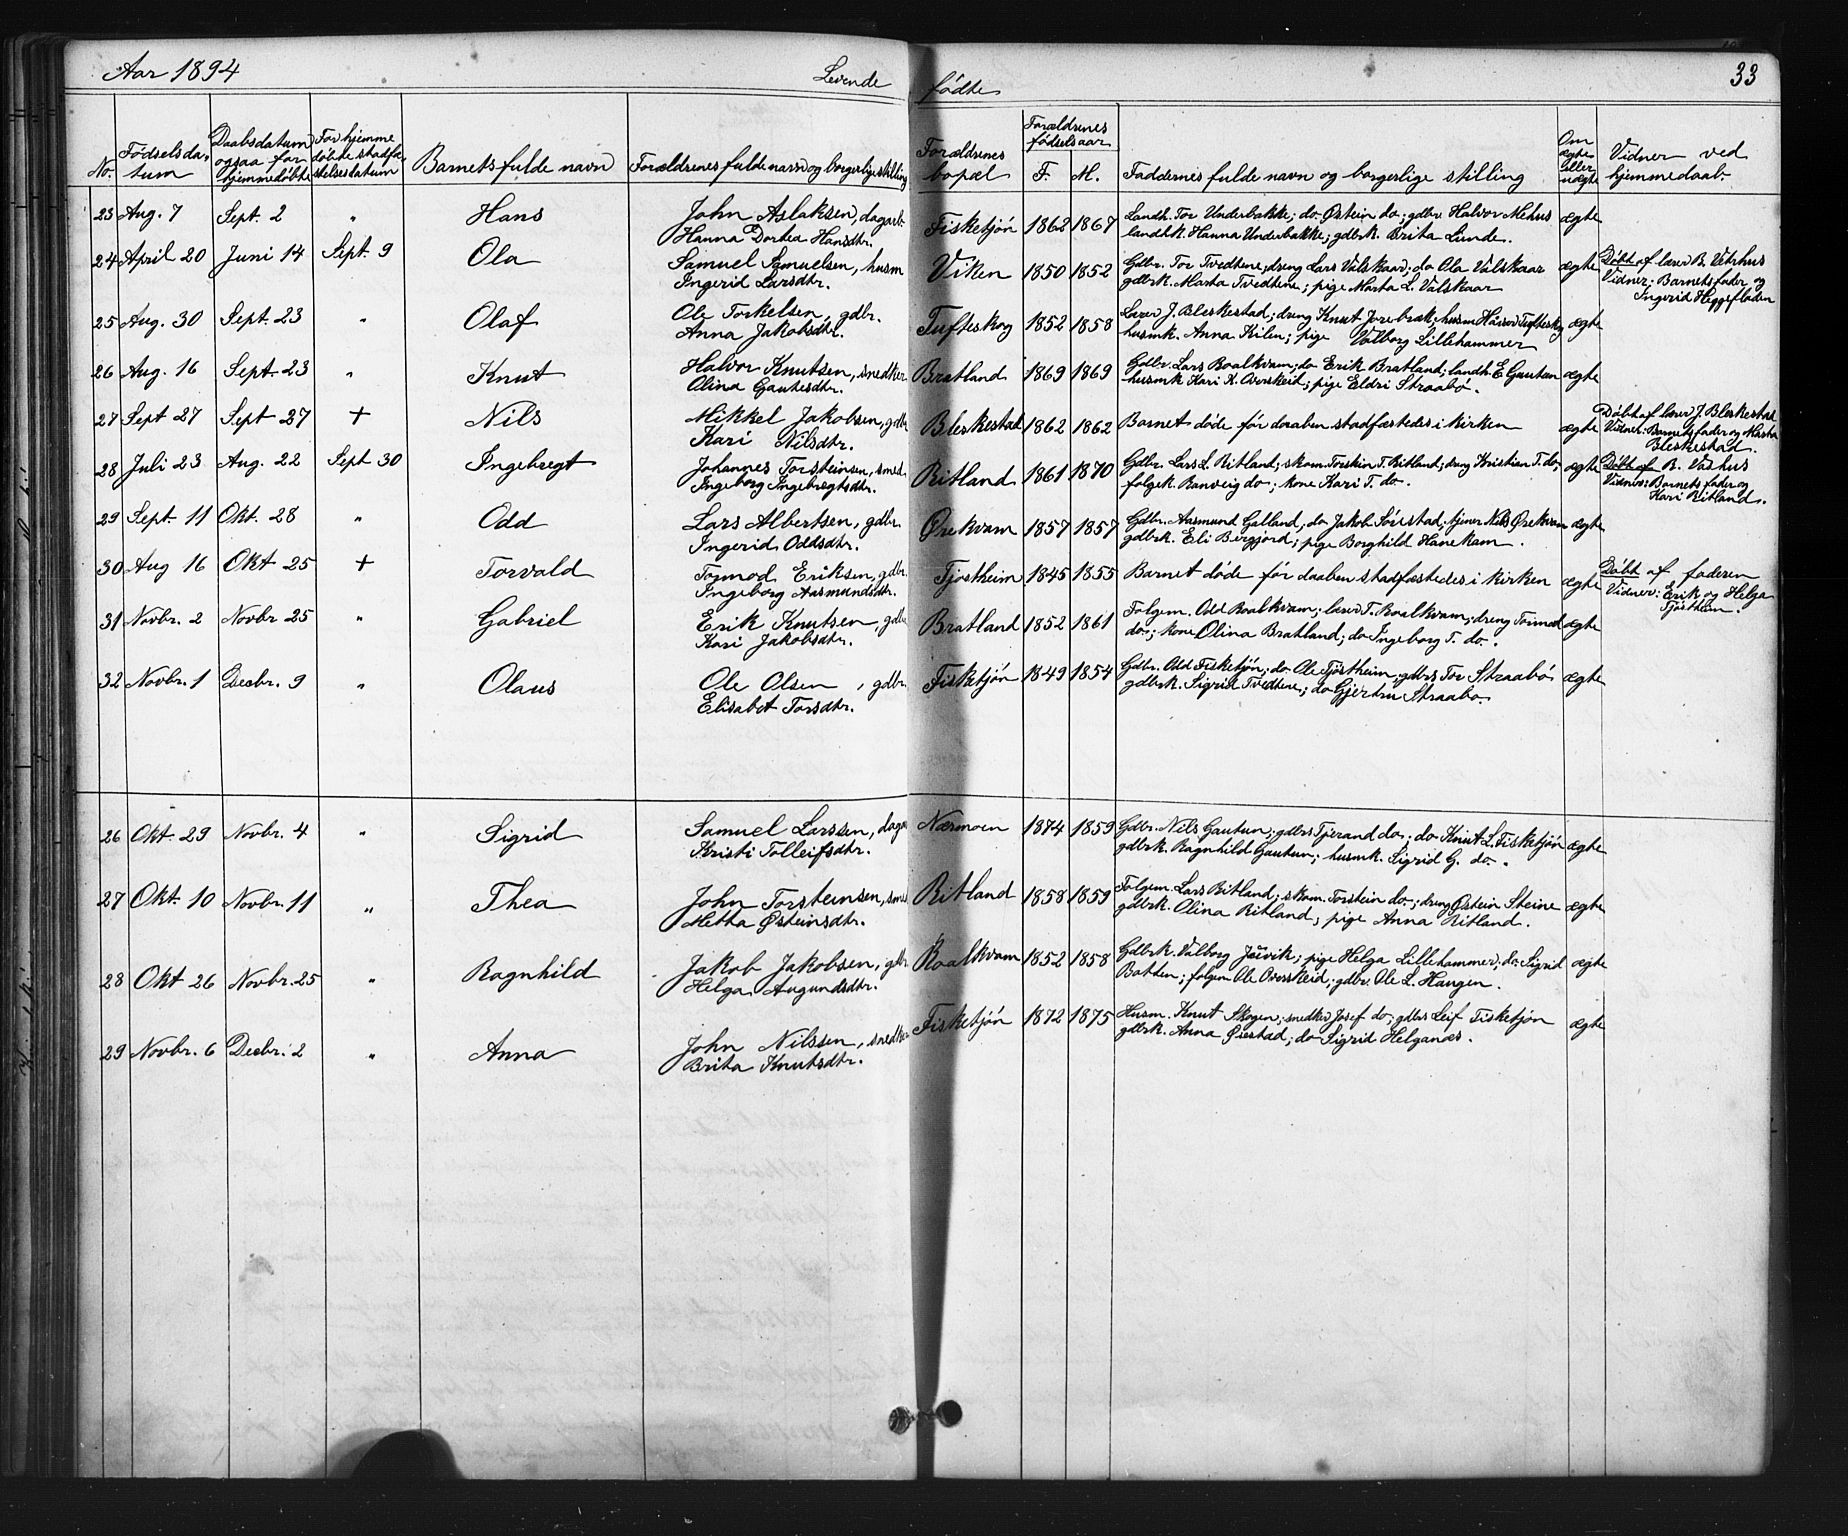 Aar 1894 Levende fødte 33
No. Fødselsdatum Daabsdatum ogsaa for hjemmedøbte For hjemme døbte stadfæstelsesdatum Barnets fulde navn Forældrenes fulde navn og borgerlige stilling Forældrenes bopæl Forældrenes fødselsaar F. M. Faddernes fulde navn og borgerlige stilling Om ægte eller uægte Vidner ved hjemmedaab.
23 Aug. 7 Sept. 2 " Hans John Aslaksen, dagarb. Fisketjøn 1862 1867 Landh. Tor Underbakke; do Østein do; gdbr. Halvor Mehus ægte
Hanna Dortea Hansdtr. landhk. Hanna Underbakke; gdbrk. Brita Lunde.
24 April 20 Juni 14 Sept. 9 Ola Samuel Samuelsen, husm Viken 1850 1852 Gdbr. Tor Tvedtene; dreng Lars Valskaar; do Ola Valskaar ægte Døbt af lærer B. Vetrhus
Ingerid Larsdtr. gdbrk. Marta Tvedtene; pige Marta L. Valskaar Vidner: Barnets fader og
Ingerid Heggefloden
25 Aug. 30 Sept. 23 " Olaf Ole Torkelsen, gdbr. Tufteskog 1852 1858 Lærer J. Bleskestad; dreng Knut Jorebræk; husm Halvor Tufteskog ægte
Anna Jakobsdtr. husmk. Anna Kilen; pige Valborg Lillehammer
26 Aug. 16 Sept. 23 " Knut Halvor Knutsen, snedker Bratland 1869 1869 Gdbr. Lars Roalkvam; do Erik Bratland; landh. E Gautun ægte
Olina Gautesdtr. husmk Kari K. Overskeid; pige Eldri Straabø.
27 Sept 27 Sept 27 + Nils Mikkel Jakobsen, gdbr Bleskestad 1862 1862 Barnet døde før daaben stadfæstedes i kirken ægte Døbt af lærer J. Bleskestad
Kari Nilsdtr. Vidner: Barnets fader og Marta
Bleskestad.
28 Juli 23 Aug. 22 Sept 30 Ingebregt Johannes Torsteinsen, smed. Ritland 1861 1870 Gdbr. Lars L. Ritland; skom. Torstein T. Ritland; dreng Kristian T. do; ægte Døbt af B. Vashus
Ingeborg Ingebregtsdtr. folgek. Ranveig do; kone Kari T. do. Vidner: Barnets fader og
Kari Ritland.
29 Sept. 11 Okt. 28 " Odd Lars Albertsen, gdbr. Ørekvam 1857 1857 Gdbr. Aasmund Galland; do Jakob Sørestad; tjener Nils Ørekvam ægte
Ingerid Oddsdtr. gdbrk. Eli Bergjord; pige Borghild Hanekam.
30 Aug 16 Okt 25 + Torvald Tormod Eriksen, gdbr. Tjøstheim 1845 1855 Barnet døde før daaben stadfæstedes i kirken ægte Døbt af faderen
Ingeborg Aasmundsdtr. Vidner: Erik og Helga
Tjøstheim.
31 Novbr. 2 Novbr 25 " Gabriel Erik Knutsen, gdbr Bratland 1852 1861 Folgem. Odd Roalkvam; lærer T. Roalkvam; dreng Tormod ægte
Kari Jakobsdtr. do; kone Olina Bratland; do Ingeborg T. do.
32 Novbr. 1 Decbr. 9 " Olaus Ole Olsen, gdbr. Fisketjøn 1849 1854 Gdbr. Odd Fisketjøn; do Ole Tjøstheim; gdbrs Tor Straabø ægte
Elisabet Torsdtr. gdbrk. Sigrid Tvedtene; do Gjertru Straabø.
26 Okt. 29 Novbr. 4 " Sigrid Samuel Larssen, daga Nærmoen 1874 1859 Gdbr. Nils Gautun; gdbrs Tjerand do; do Knut L. Fisketjøn ægte
Kristi Tolleifsdtr. gdbrk. Ragnhild Gautun; husmk. Sigrid G. do.
27 Okt. 10 Novbr. 11 " Thea John Torsteinsen, smed Ritland 1858 1859 Folgem. Lars Ritland; skom. Torstein do; dreng Østein Steine ægte
Metha Østeinsdtr. gdbrk. Olina Ritland; pige Anna Ritland.
28 Okt 26 Novbr. 25 " Ragnhild Jakob Jakobsen, gdbr Roalkvam 1852 1858 Gdbrk. Valborg Jøsvik; pige Helga Lillehammer; do Sigrid ægte
Helga Augundsdtr. Botten; folgem Ole Overskeid; gdbr. Ole L. Haugen.
29 Novbr. 6 Decbr. 2 " Anna John Nilssen, snedker Fisketjøn 1872 1875 Husm. Knut Skogen; snedker Josef do; gdbrs Leif Fisketjøn ægte
Brita Knutsdtr. gdbrk. Anna Ørestad; do Sigrid Helganæs.